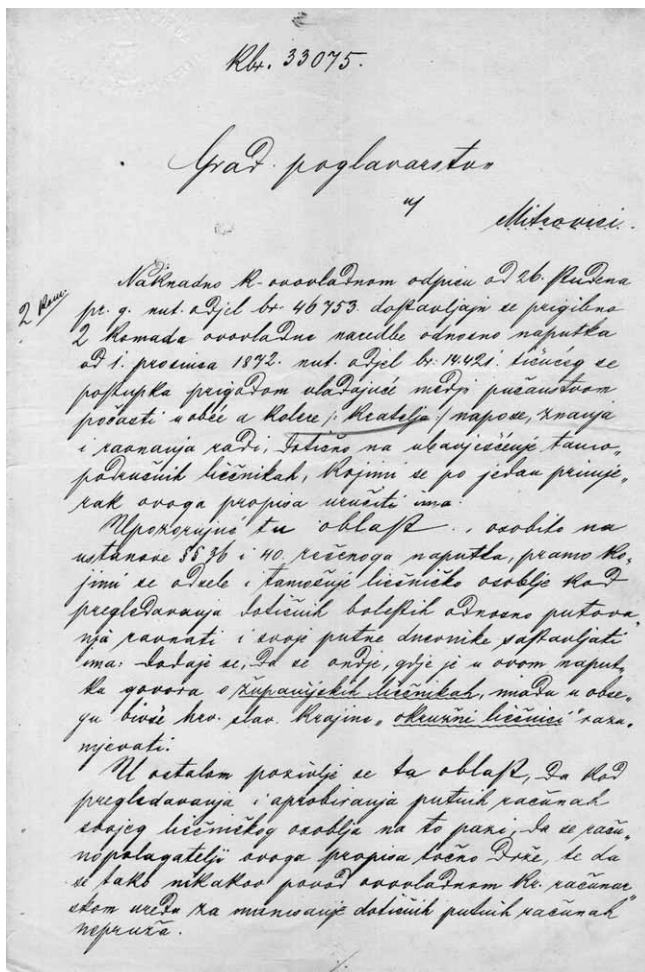 Kbr. 33075.
Grad. poglavarstvu
u
Mitrovici.
2 kom.
Naknadno k ovovladnom odpisu od 26. studena
pr. g. nut. odjel br. 46753. dostavljaju se prigibno
2 komada ovovladne naredbe odnosno naputka
od 1. prosinca 1872. nut. odjel br. 14.421. tičućeg se
postupka prigodom vladajuće medju pučanstvom
pošasti u obće a kolere /: kratelja :/ napose, znanja
i ravnanja radi, dotično na ubavješćenje tamo„
područnih liečnikah, kojimi se po jedan primje„
rak ovoga propisa uručiti ima.
Upozorujuć tu oblast, osobito na
ustanove §§ 36 i 40. rečenoga naputka, pramo ko„
jimi se odsele i tamošnje liečničko osoblje kod
pregledavanja dotičnih bolestih odnosno putova„
nja ravnati i svoje putne dnevnike sastavljati
ima: dodaje se, da se ondje, gdje je u ovom naput„
ku govora o županijskih liečnikah, imadu u obse„
gu bivše hrv. slav. krajine „okružni liečnici“ razu„
mjevati.
U ostalom pozivlje se ta oblast, da kod
pregledavanja i aprobiranja putnih računah
svojeg liečničkog osoblja na to pazi, da se raču„
nopolagatelji ovoga propisa točno drže, te da
se tako nikakov povod ovovladnom kr. računar
skom uredu za dotičnih putnih računah
nepruža.